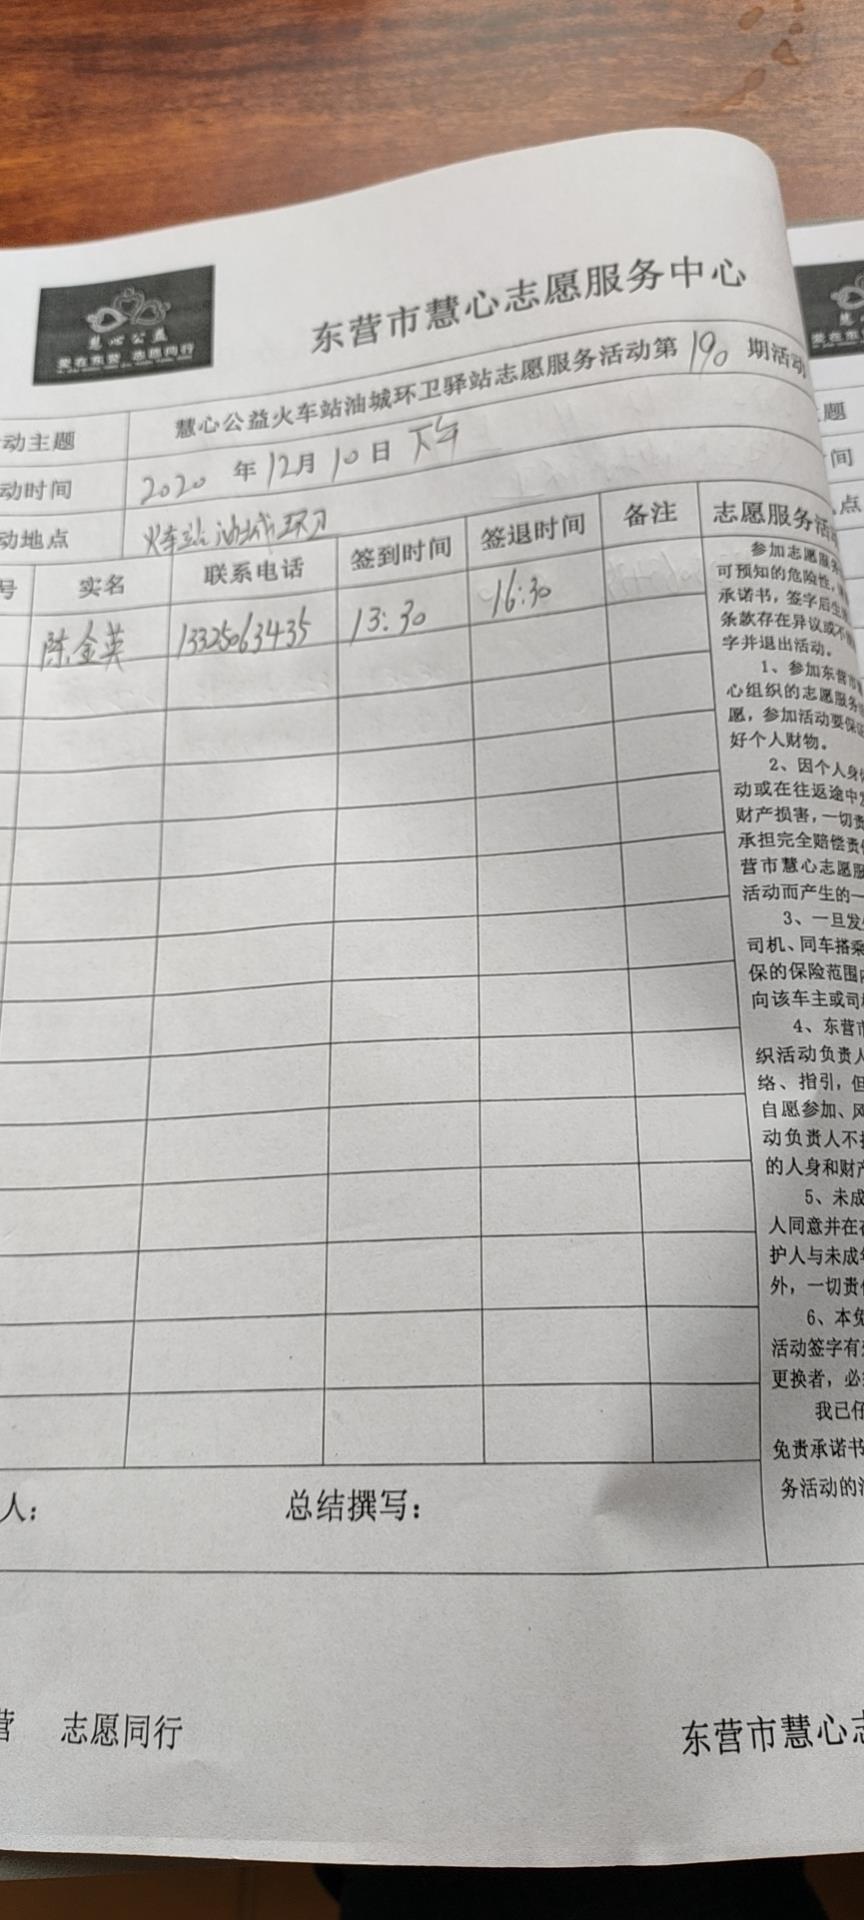 慧心公益
爱在东营 志愿同行
东营市慧心志愿服务中心
动主题 慧心公益火车站油城环卫驿站志愿服务活动第190期活动
动时间 2020年12月10日下午
动地点 火车站油城环卫
号 实名 联系电话 签到时间 签退时间 备注 志愿服务活
陈金英 13325063435 13:30 16:30
参加志愿服务
可预知的危险性,
承诺书,签字后生
条款存在异议或不
字并退出活动。
1、参加东营市
心组织的志愿服务
愿,参加活动要保证
好个人财物。
2、因个人身体
动或在往返途中发
财产损害,一切责
承担完全赔偿责任
营市慧心志愿服
活动而产生的一
3、一旦发生
司机、同车搭乘
保的保险范围内
向该车主或司机
4、东营市
织活动负责人
络、指引,但
自愿参加、风
动负责人不承
的人身和财产
5、未成
人同意并在
护人与未成年
外,一切责任
6、本免
活动签字有效
更换者,必
我已仔
免责承诺书
务活动的
人: 总结撰写:
营 志愿同行 东营市慧心志
爱在东
主题
间
点